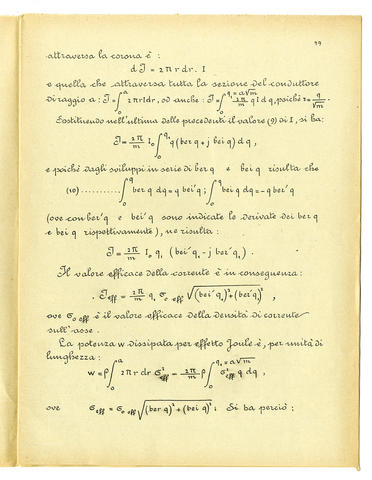 99
attraversa la corona è:
dJ = 2πr dr. I
e quella che attraversa tutta la sezione del conduttore
di raggio a: J = ∫₀ᵃ 2πrIdr, od anche: J = ∫₀^{q₁=a√m} 2π/m q I dq, poiché r = q/√m.
Sostituendo nell'ultima delle precedenti il valore (9) di I, si ha:
J = 2π/m I₀ ∫₀^{q₁} q (ber q + j bei q) dq,
e poiché dagli sviluppi in serie di ber q e bei q risulta che
(10) .......... ∫₀^q q ber q dq = q bei'q; ∫₀^q q bei q dq = -q ber'q
(ove con ber'q e bei'q sono indicate le derivate dei ber q
e bei q rispettivamente), ne risulta:
J = 2π/m I₀ q₁ (bei'q₁ - j ber'q₁).
Il valore efficace della corrente è in conseguenza:
J eff = 2π/m q₁ σ₀ eff √(bei'q₁)²+(ber'q₁)²,
ove σ₀ eff è il valore efficace della densità di corrente
sull'asse.
La potenza w dissipata per effetto Joule è, per unità di
lunghezza:
w = ρ∫₀ᵃ 2πr dr σ²eff = 2π/m ρ∫₀^{q₁=a√m} σ²eff q dq,
ove σeff = σ₀ eff √(ber q)²+(bei q)²; Si ha perciò: